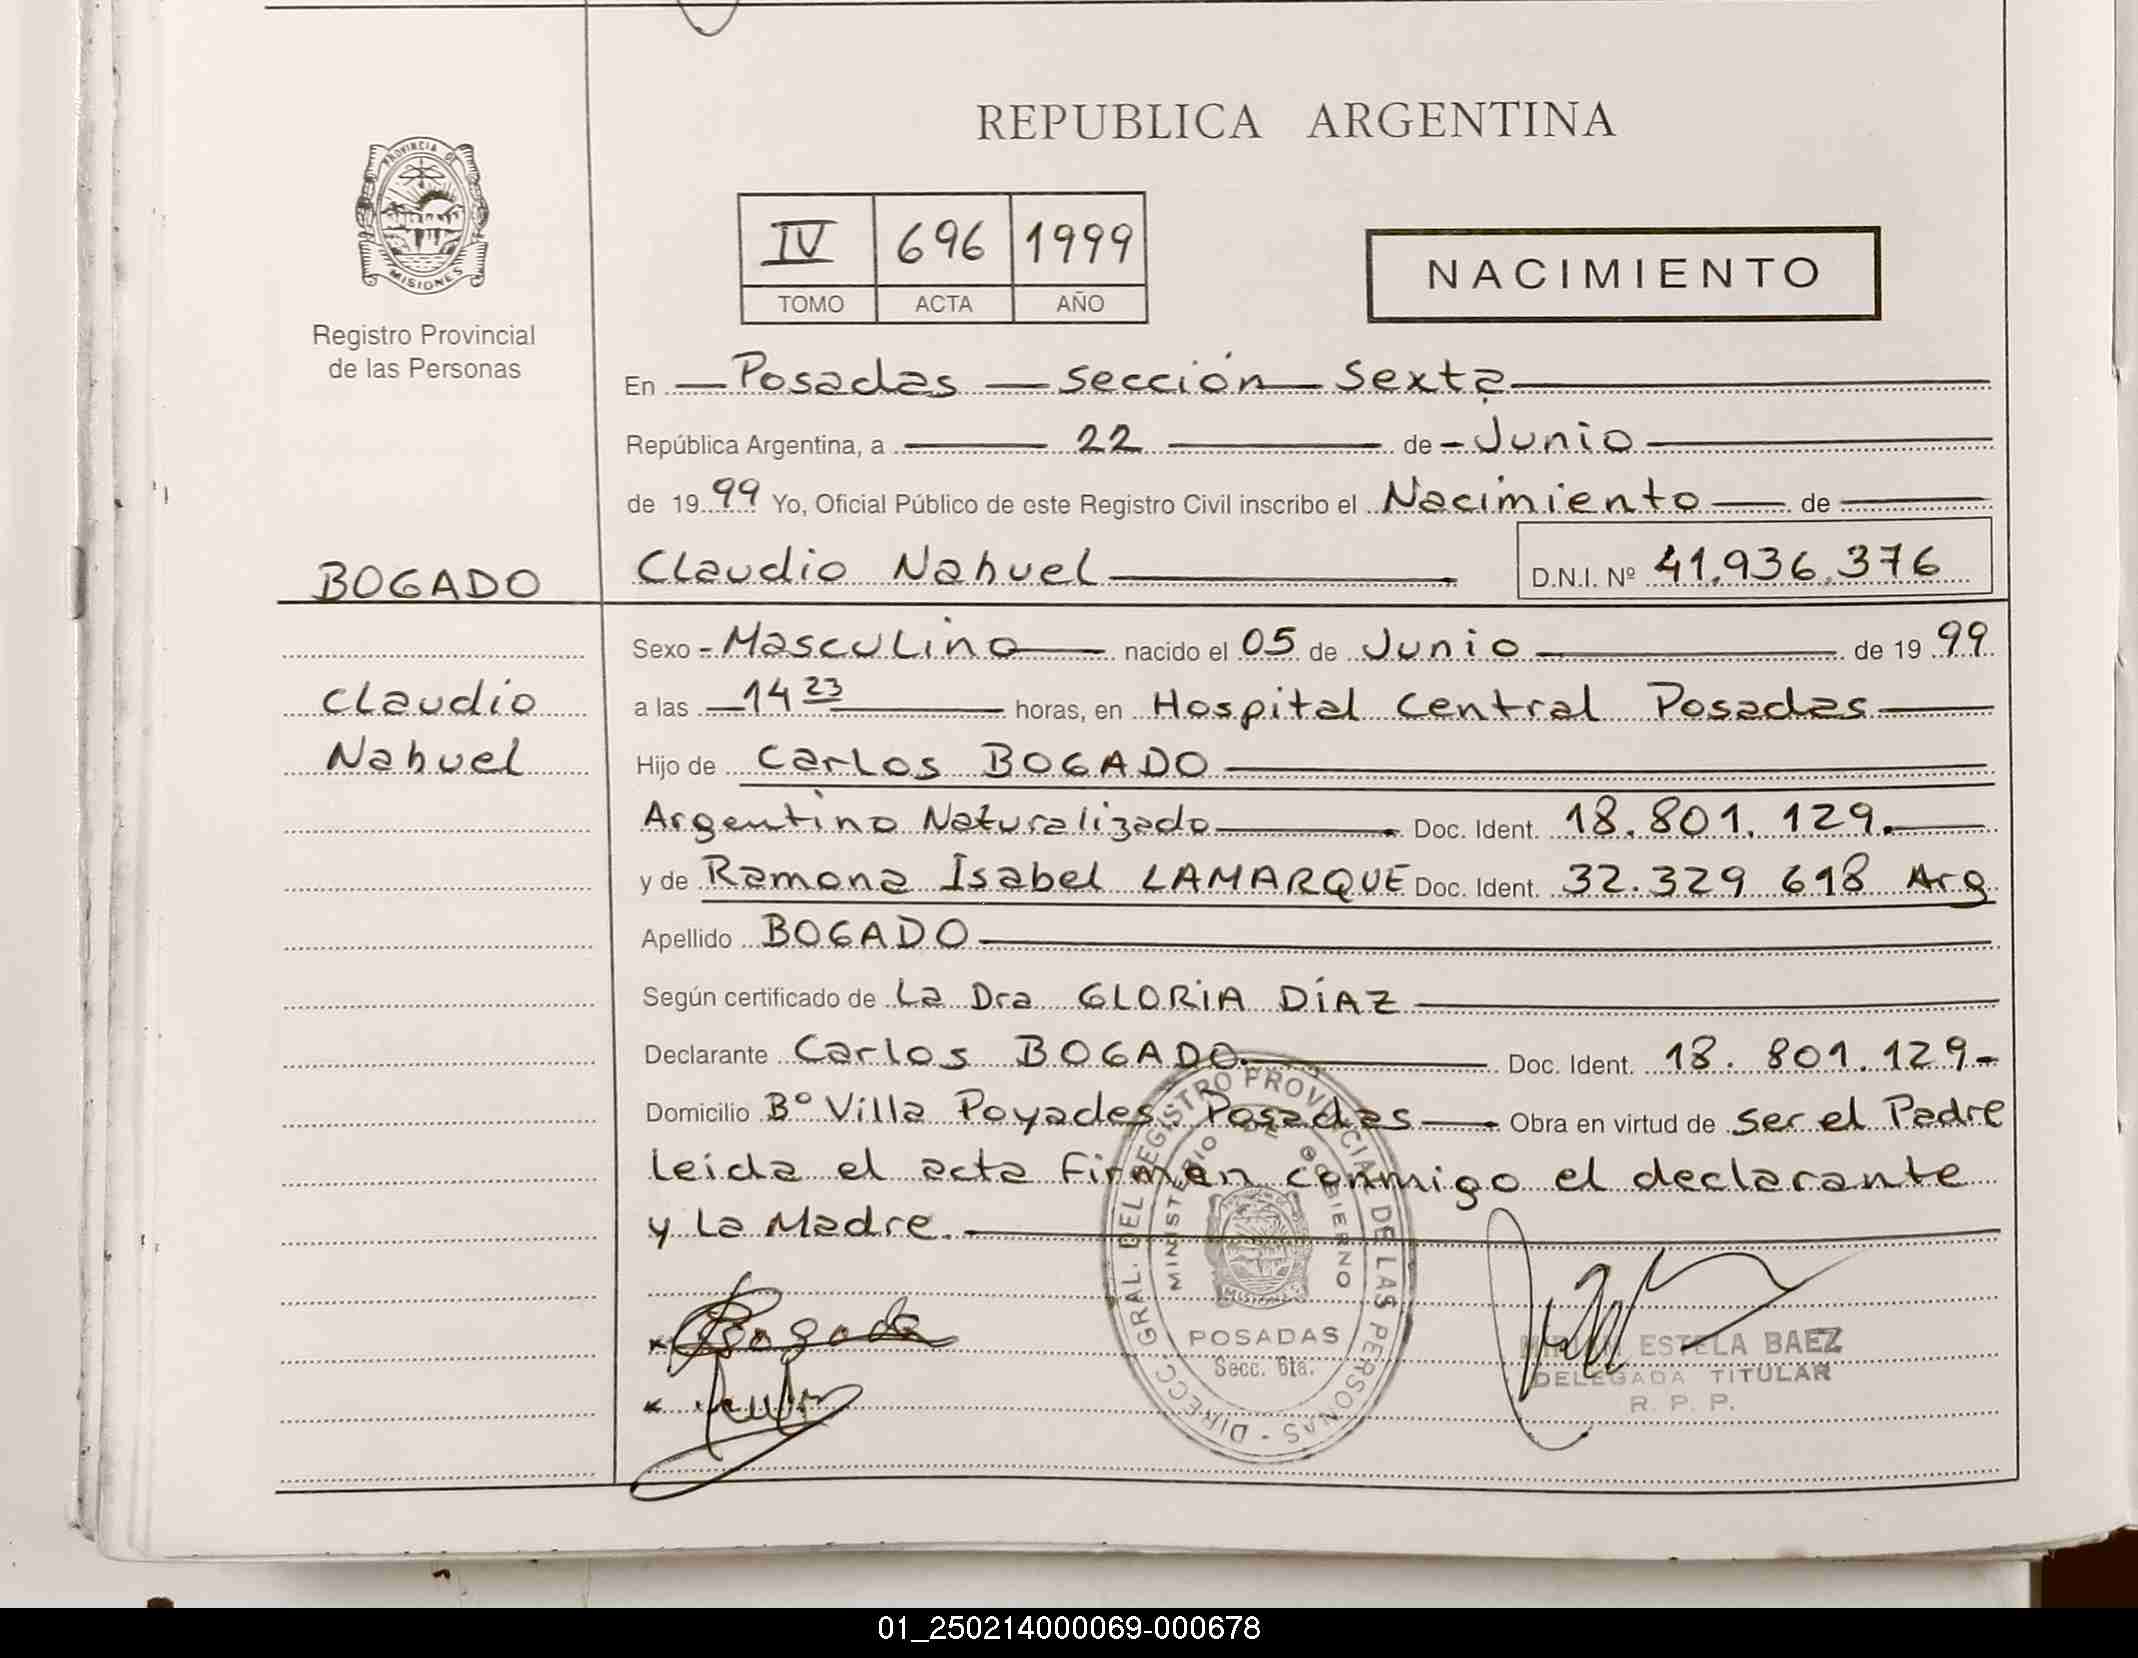 REPUBLICA ARGENTINA
PROVINCIA DE
MISIONES
Registro Provincial
de las Personas
IV 696 1999
TOMO ACTA AÑO
NACIMIENTO
En Posadas sección Sexta
República Argentina, a 22 de Junio
de 1999 Yo, Oficial Público de este Registro Civil inscribo el Nacimiento de
BOGADO Claudio Nahuel D.N.I. Nº 41.936.376
Sexo Masculino nacido el 05 de Junio de 1999
Claudio a las 14 23 horas, en Hospital Central Posadas
Nahuel Hijo de Carlos BOGADO
Argentino Naturalizado Doc. Ident. 18.801.129.
y de Ramona Isabel LAMARQUE Doc. Ident. 32.329 618 Arg
Apellido BOGADO
Según certificado de La Dra GLORIA DÍAZ
Declarante Carlos BOGADO Doc. Ident. 18.801.129-
Domicilio Bº Villa Poyades. Posadas Obra en virtud de ser el Padre
leida el acta Firman conmigo el declarante
y La Madre.
Bogado
DIRECC GRAL. DEL REGISTRO PROVINCIAL DE LAS PERSONAS -
MINISTERIO DE GOBIERNO
MISIONES
POSADAS
Secc. 6ta.
ESTELA BAEZ
DELEGADA TITULAR
R. P. P.
01_250214000069-000678